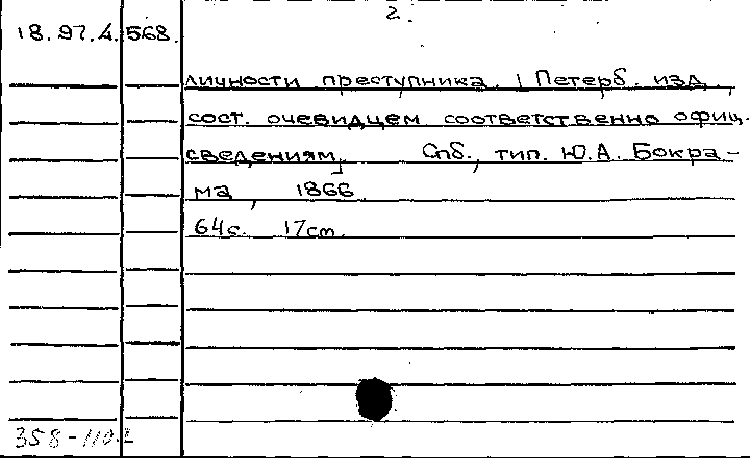 2.
18.97.4.568.
личности преступника. [Петерб. изд.,
сост. очевидцем соответственно офиц.
сведениям]. Спб., тип. Ю.А. Бокра-
ма, 1866.
64с. 17см.